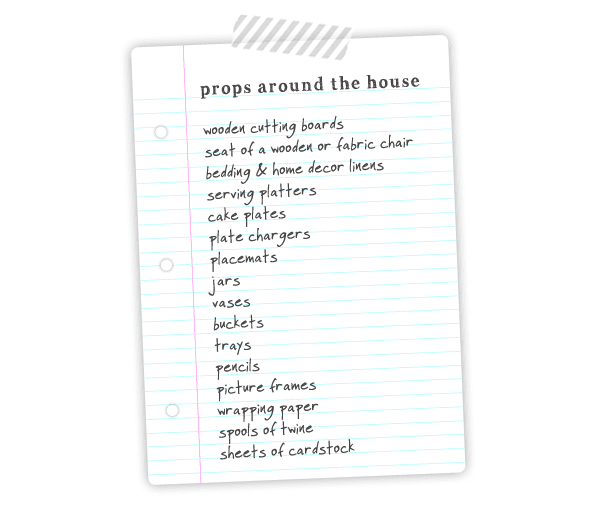 props around the house
wooden cutting boards
seat of a wooden or fabric chair
bedding & home decor linens
serving platters
cake plates
plate chargers
placemats
jars
vases
buckets
trays
pencils
picture frames
wrapping paper
spools of twine
sheets of cardstock